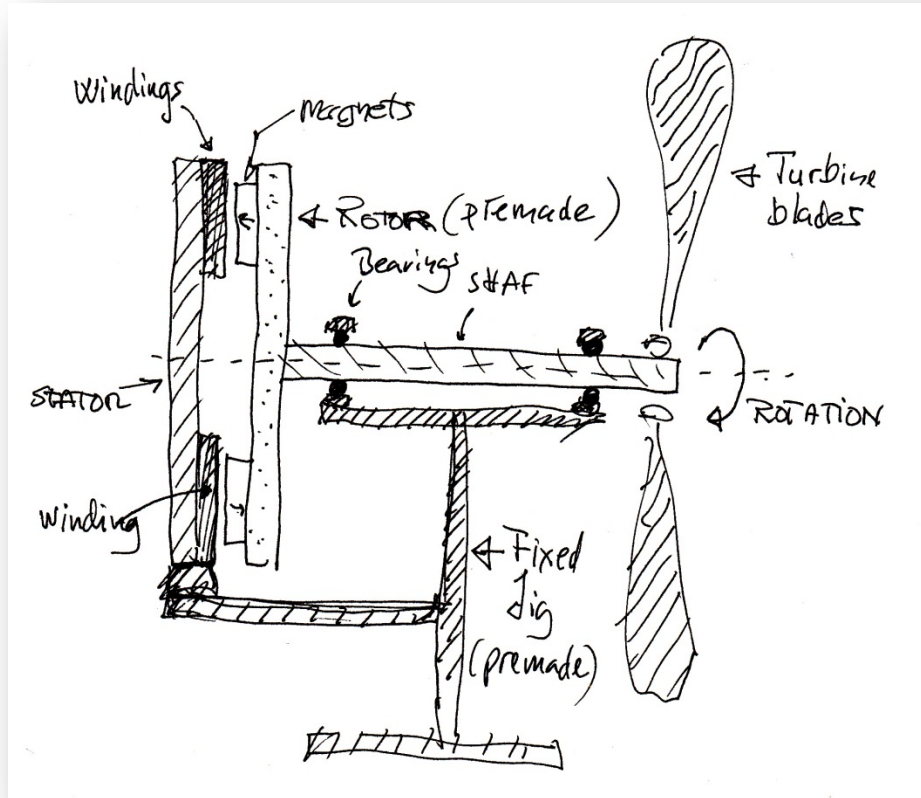 Windings
Magnets
ROTOR (premade)
Turbine
blades
Bearings
SHAF
STATOR
ROTATION
Winding
Fixed
Jig
(premade)